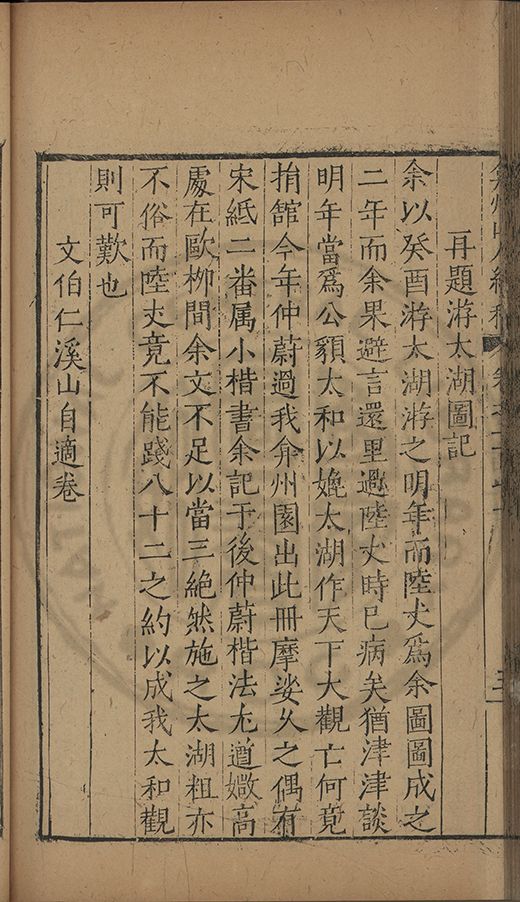 再題游太湖圖記
余以癸酉游太湖游之明年而陸丈爲余圖圖成之
二年而余果避言還里過陸丈時已病矣猶津津談
明年當爲公貌太和以媲太湖作天下大觀亡何竟
捐舘今年仲蔚過我弇州園出此冊摩娑久之偶有
宋紙二番属小楷書余記于後仲蔚楷法尤遒媺高
處在歐栁間余文不足以當三絶然施之太湖粗亦
不俗而陸丈竟不能踐八十二之約以成我太和觀
則可歎也
文伯仁溪山自適卷